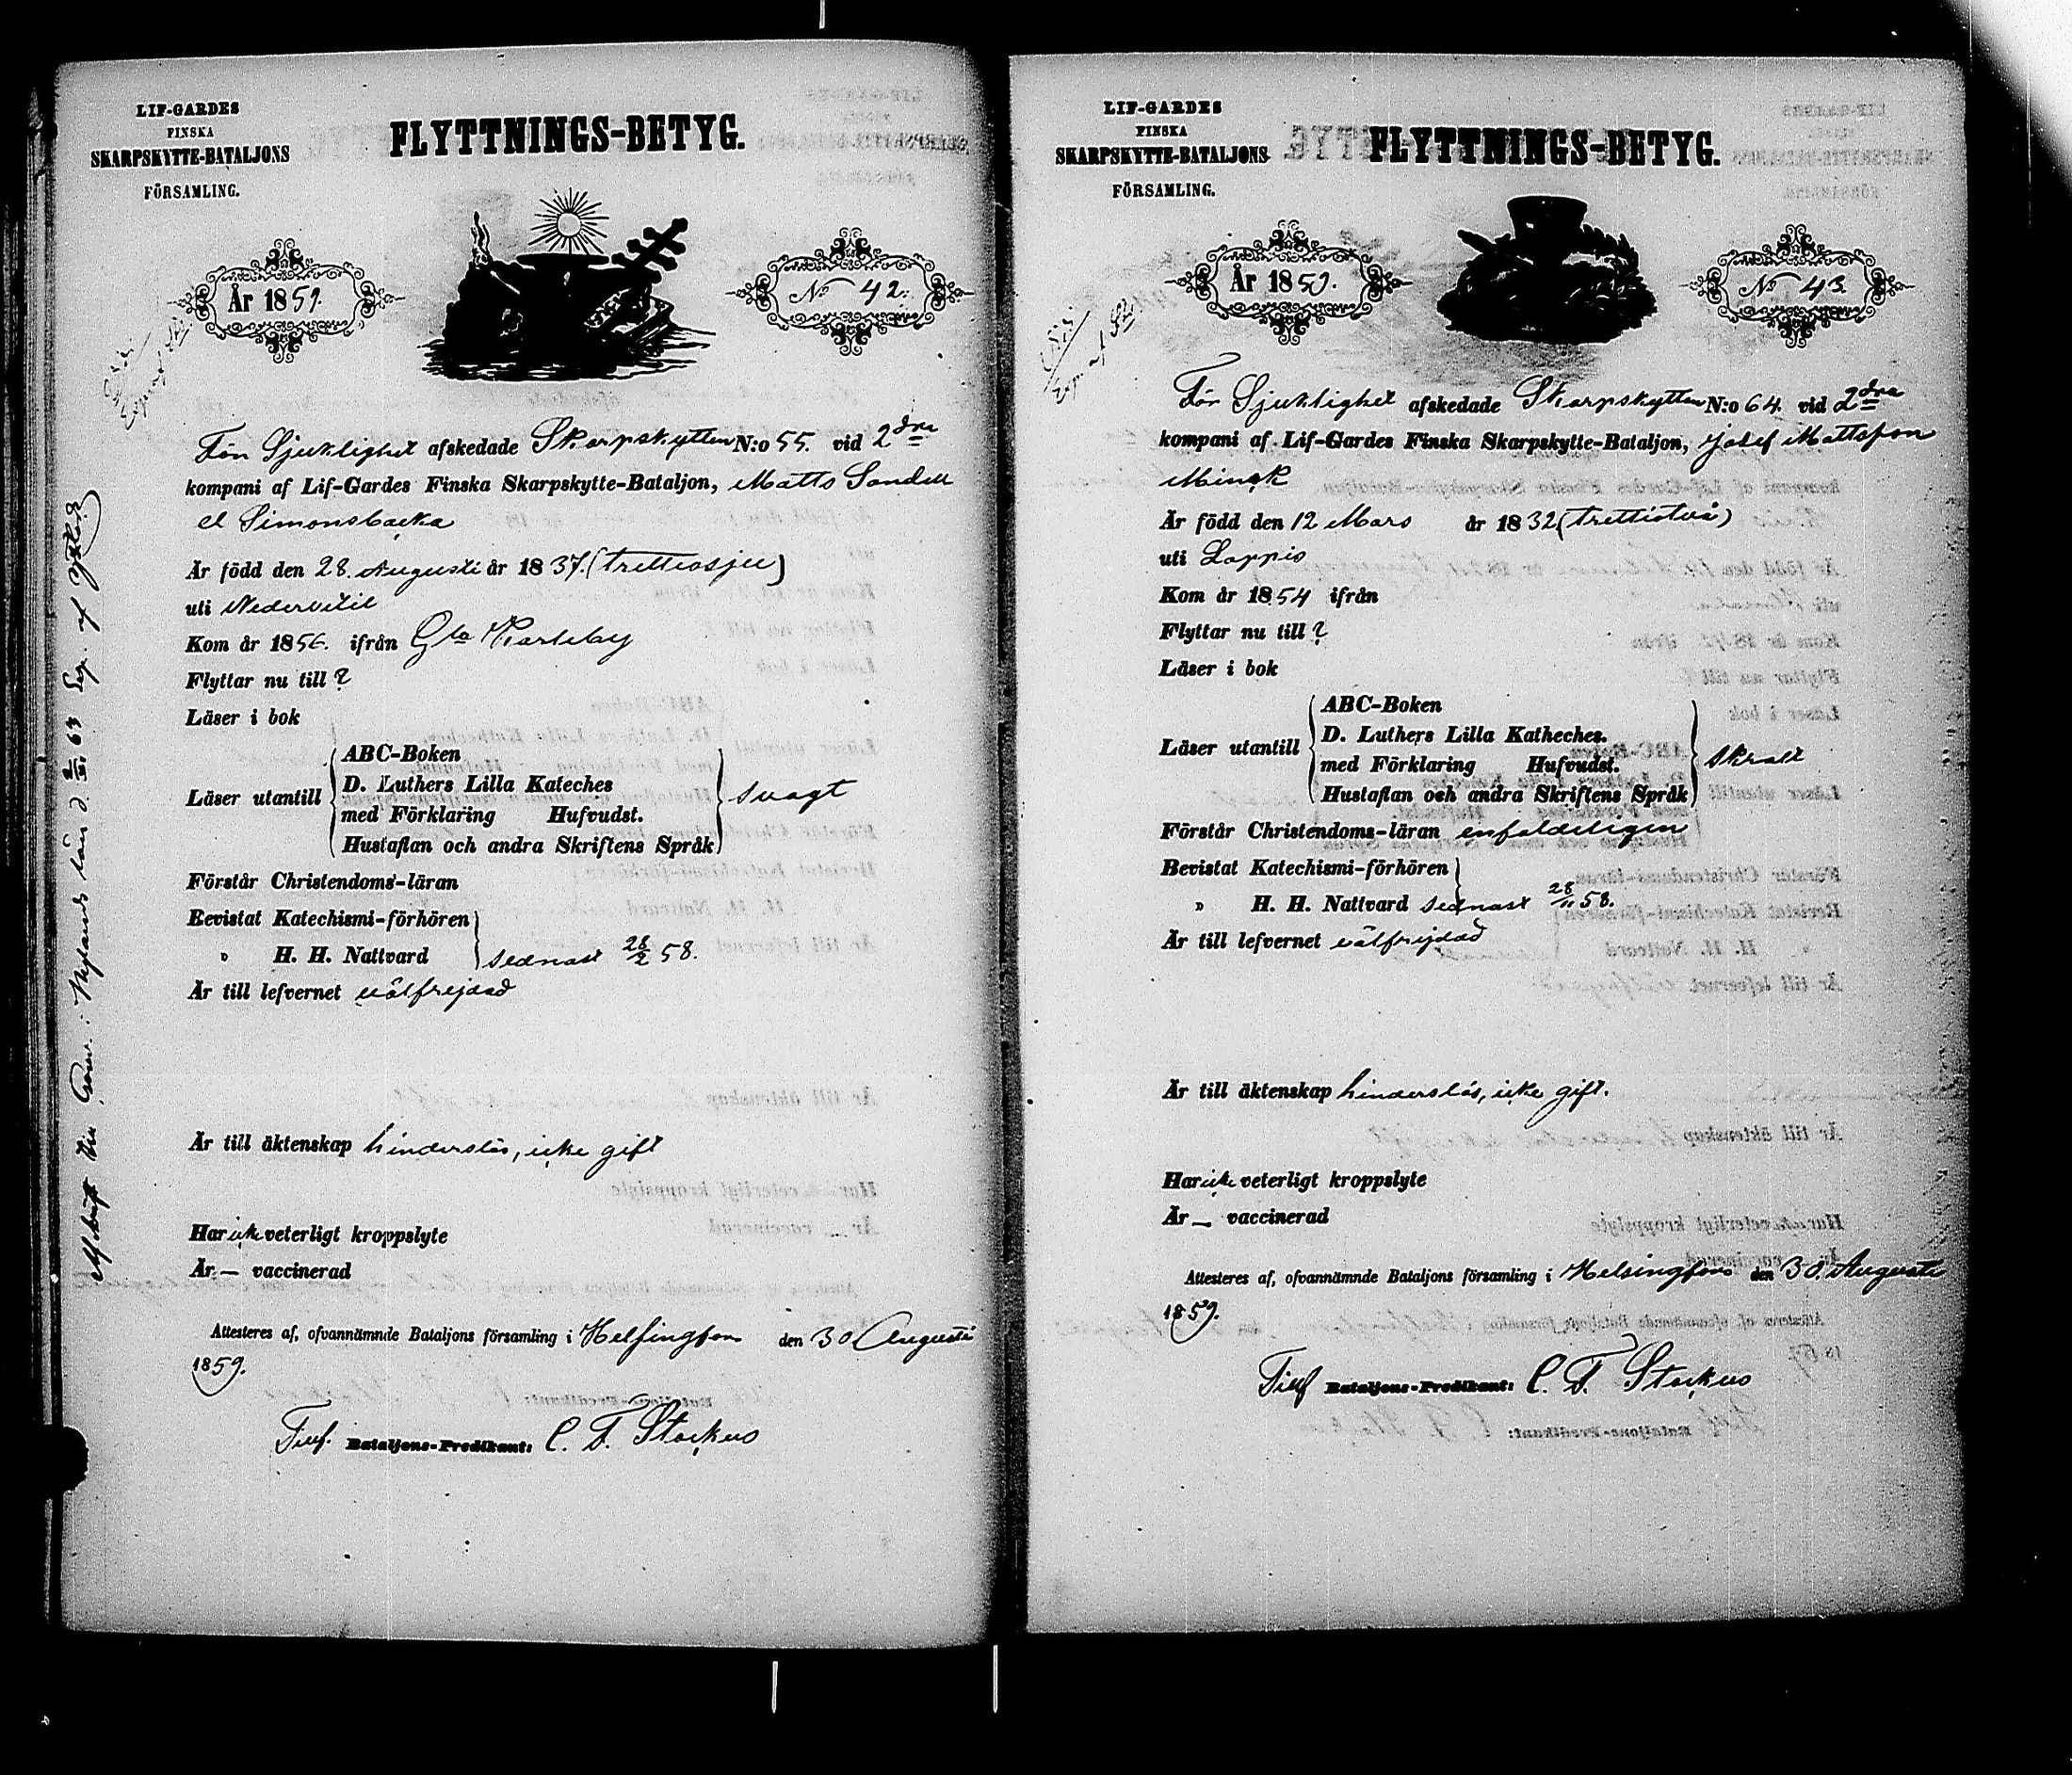 LIF-GARDES
FINSKA
SKARPSKYTTE-BATALJONS
FÖRSAMLING.
FLYTTNINGS-BETYG.
År 1859.
No 42.
För Sjuklighet afskedade Skarpskytten N:o 55. vid 2dra
kompani af Lif-Gardes Finska Skarpskytte-Bataljon, Matts Sandell
el Simonsbacka
Är född den 28. Augusti år 1837. (trettiosju)
uti Nedervetil
Kom år 1856. ifrån Gla Karleby
Flyttar nu till ?
Läser i bok
Läser utantill
ABC-Boken
D. Luthers Lilla Kateches
med Förklaring Hufvudst.
Hustaflan och andra Skriftens Språk
svagt
Förstår Christendoms-läran
Bevistat Katechismi-förhören
» H. H. Nattvard sednast 28/2 58.
Är till lefvernet välfrejdad
Är till äktenskap hinderslös, icke gift
Har icke veterligt kroppslyte
Är — vaccinerad
Attesteras af, ofvannämnde Bataljons församling i Helsingfors den 30 Augusti
1859.
Bataljons-Predikant: C. F. Stockus
Nylands län d.
LIF-GARDES
FINSKA
SKARPSKYTTE-BATALJONS
FÖRSAMLING.
FLYTTNINGS-BETYG.
År 1859.
No 43.
För Sjuklighet afskedade Skarpskytten N:o 64. vid 2dra
kompani af Lif-Gardes Finska Skarpskytte-Bataljon, Josef Mattsson
Minsk
Är född den 12 Mars år 1832 (trettiotvå)
uti Loppis
Kom år 1854 ifrån
Flyttar nu till ?
Läser i bok
Läser utantill
ABC-Boken
D. Luthers Lilla Katheches.
med Förklaring Hufvudst.
Hustaflan och andra Skriftens Språk
skralt
Förstår Christendoms-läran enfaldeligen
Bevistat Katechismi-förhören
» H. H. Nattvard sednast 28/11 58.
Är till lefvernet välfrejdad
Är till äktenskap hinderslös, icke gift.
Har icke veterligt kroppslyte
Är — vaccinerad
Attesteres af, ofvannämnde Bataljons församling i Helsingfors den 30. Augusti
1859.
Bataljons-Predikant: C. F. Stockus